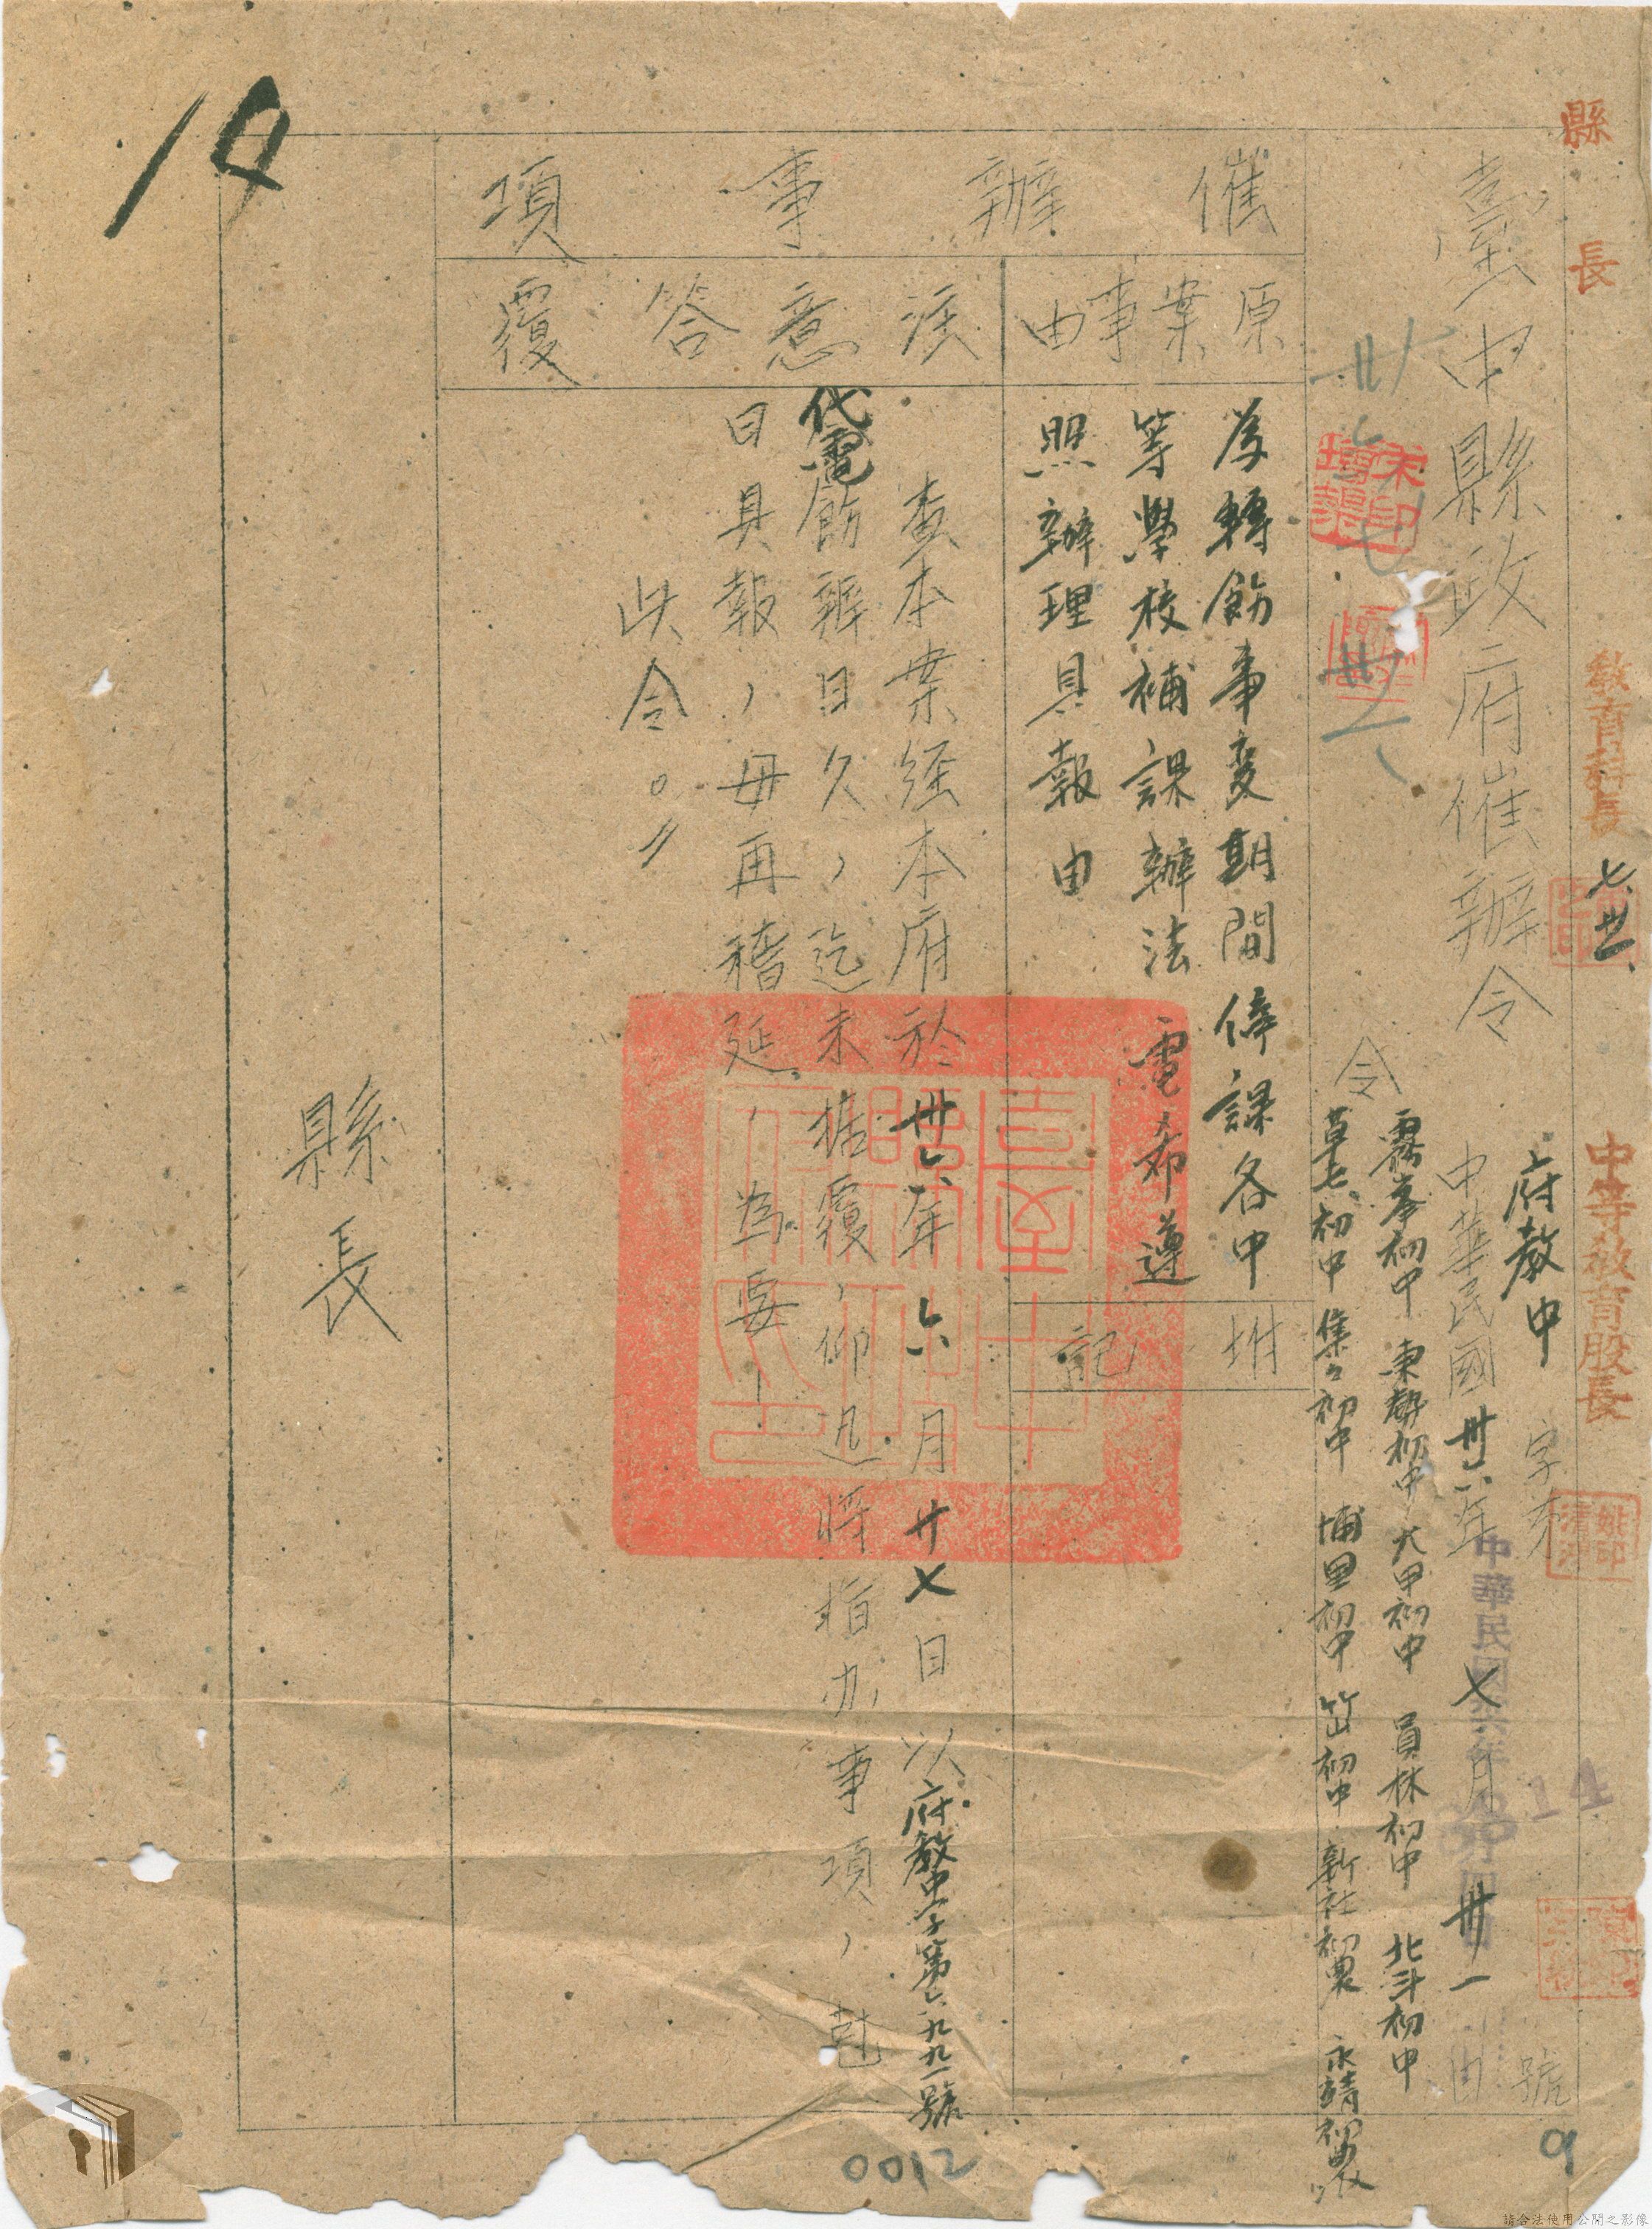 縣長
教育科長
七、卅一
中等教育股長
臺中縣政府催辦令
府教中
字第
號
中華民國卅六年七月卅一日
中華民國卅六年
14
令
霧峯初中 東勢初中 大甲初中 員林初中 北斗初中
草屯初中 集々初中 埔里初中 竹山初中 新社初農 永靖初農
催辦事項
原案事由
為轉飭事変期間停課各中
等學校補課辦法 電希遵
照辦理具報由
附記
注意答覆
查本案経本府於卅六年六月廿七日以府教中字第六九九一號
代電飭辦日久，迄未據覆，仰迅將指办事項，尅
日具報，毋再稽延，為要！
此令。〃
縣長
19
0012
9
請合法使用公開之影像